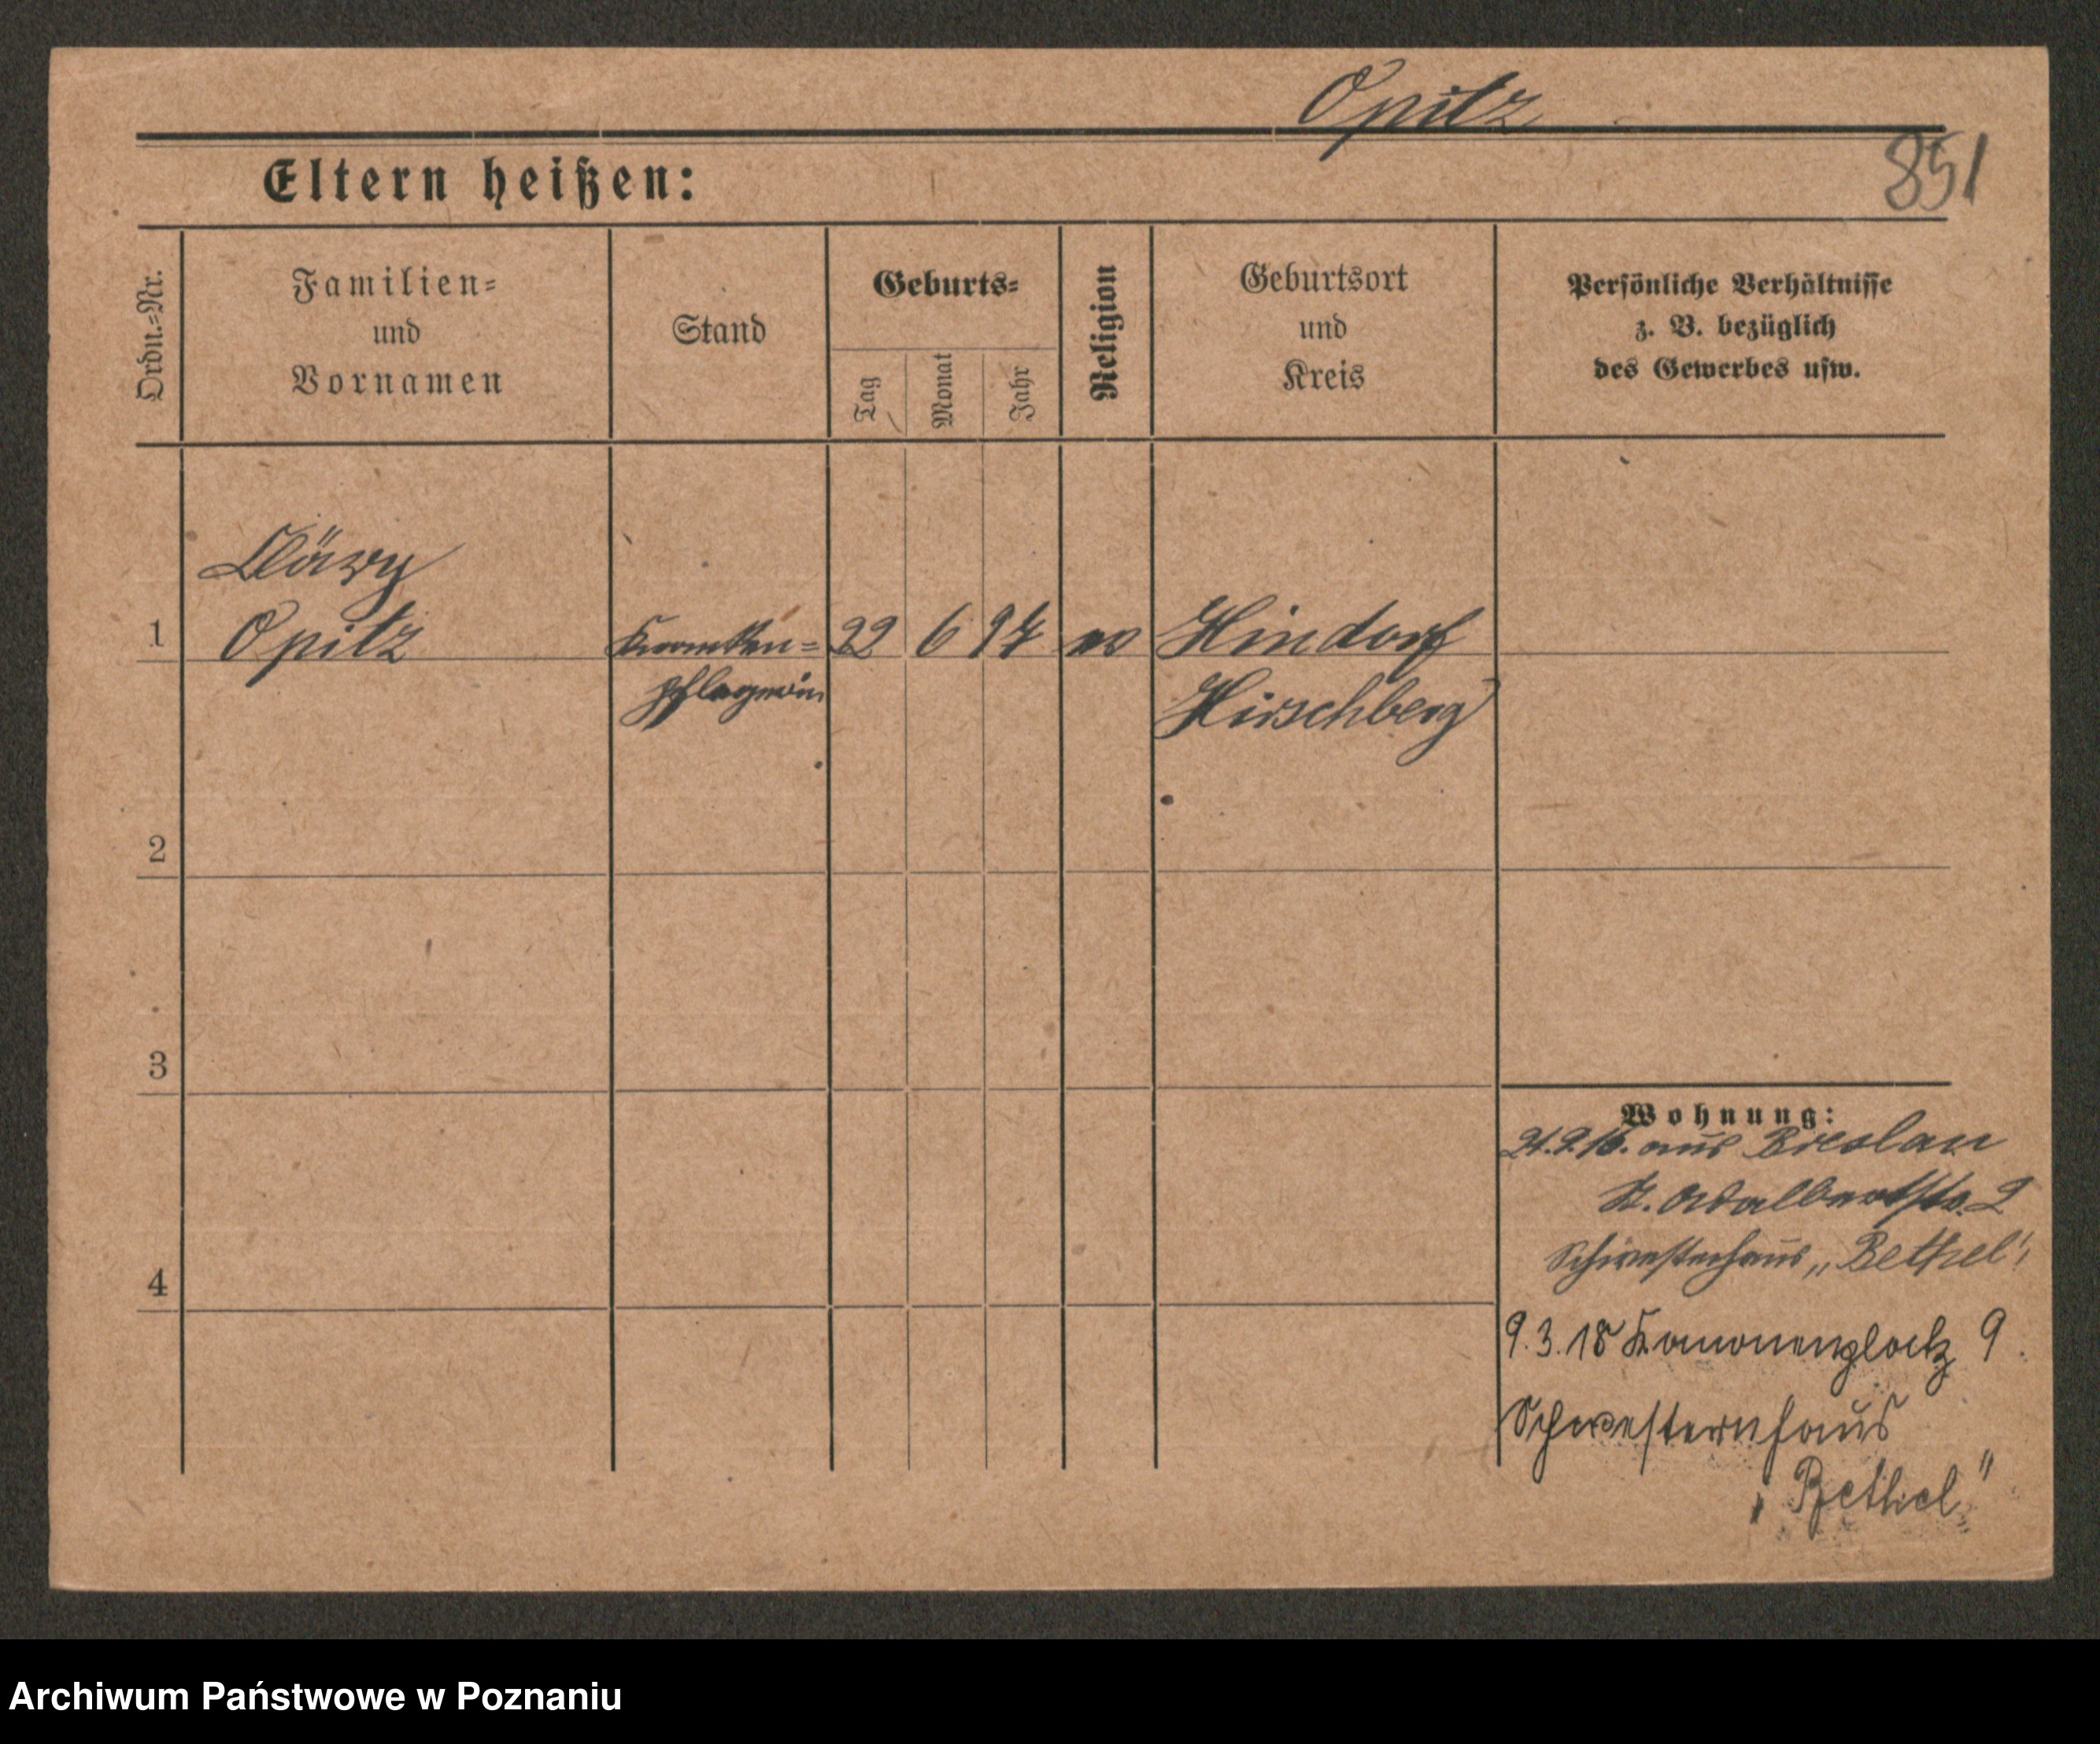 Opitz
851
Eltern heißen:
Ordn.=Nr.
Familien=
und
Vornamen
Stand
Geburts=
Tag
Monat
Jahr
Religion
Geburtsort
und
Kreis
Persönliche Verhältnisse
z. B. bezüglich
des Gewerbes usw.
1
Opitz
Kranken=
pflegerin
22 6 94
ev
Hindorf
Hirschberg
2
3
4
Wohnung:
21.9.16. aus Breslau
St. Adalbertstr. 2
Schwesterhaus „Bethel"
9.3.18 Kanonenplatz 9.
Schwesternhaus
„Bethel"
Archiwum Państwowe w Poznaniu